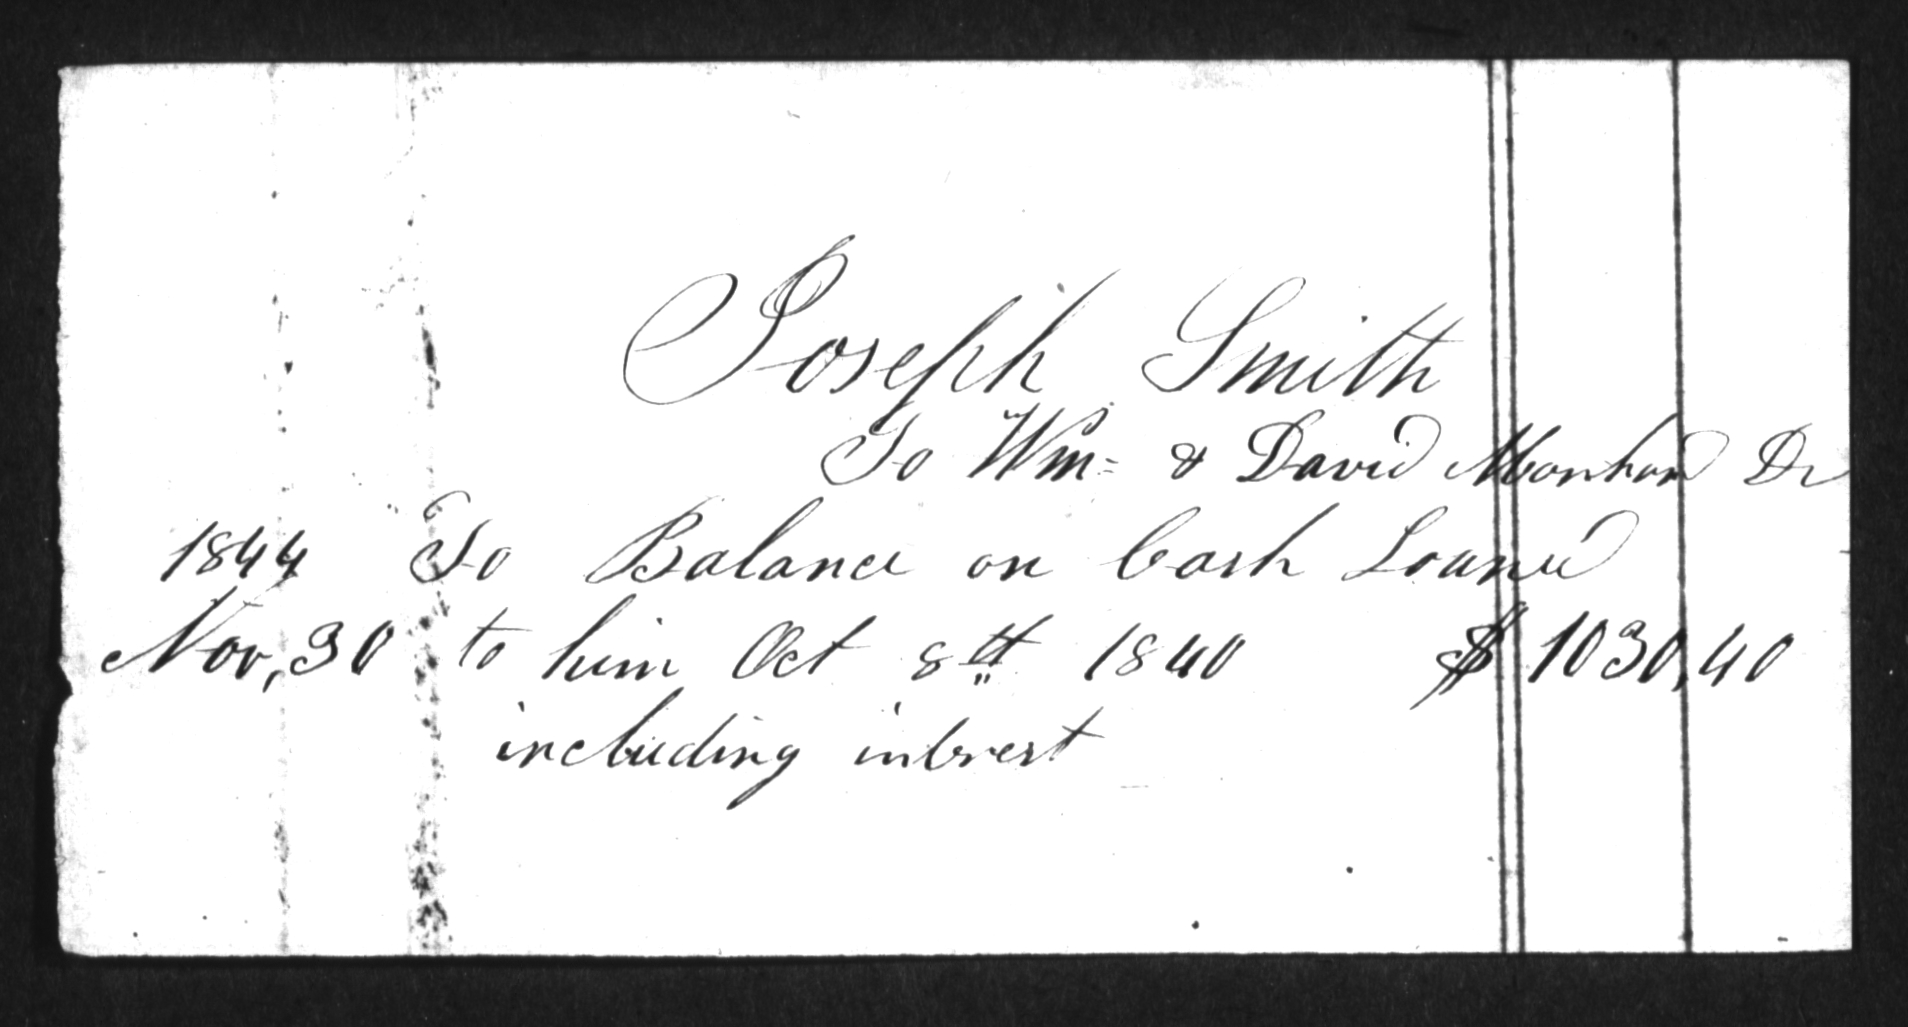 Joseph Smith
To Wm= & David Moorhead Dr
1844 To Balance on Cash Loaned
Nov, 30 to him Oct 8th 1840 $ 1030,40
including interest